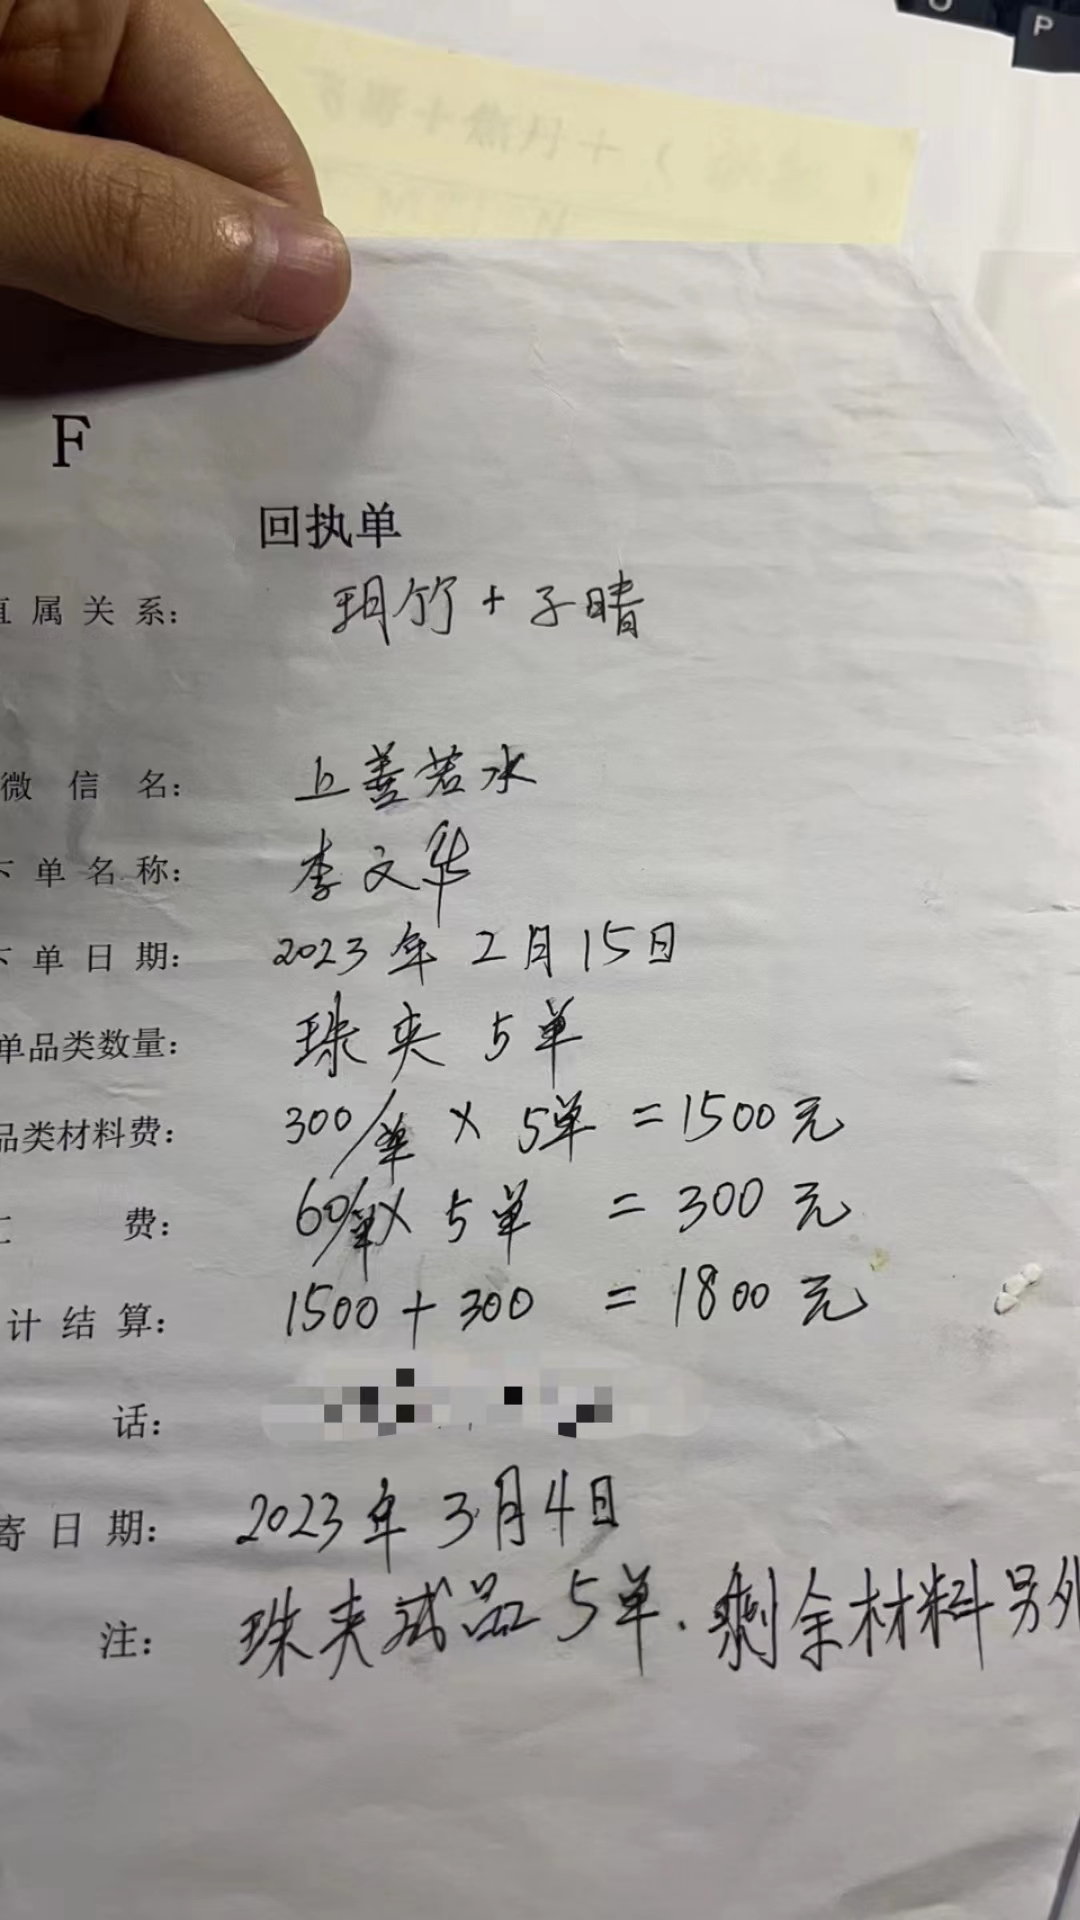 P
F
回执单
属关系: 玥竹+子晴
微信名: 上善若水
单名称: 李文华
单日期: 2023年2月15日
单品类数量: 珠夹 5单
品类材料费: 300/单 × 5单 = 1500元
费: 60/单 × 5单 = 300元
计结算: 1500+300 = 1800元
话:
寄日期: 2023年3月4日
注: 珠夹试品5单.剩余材料另外